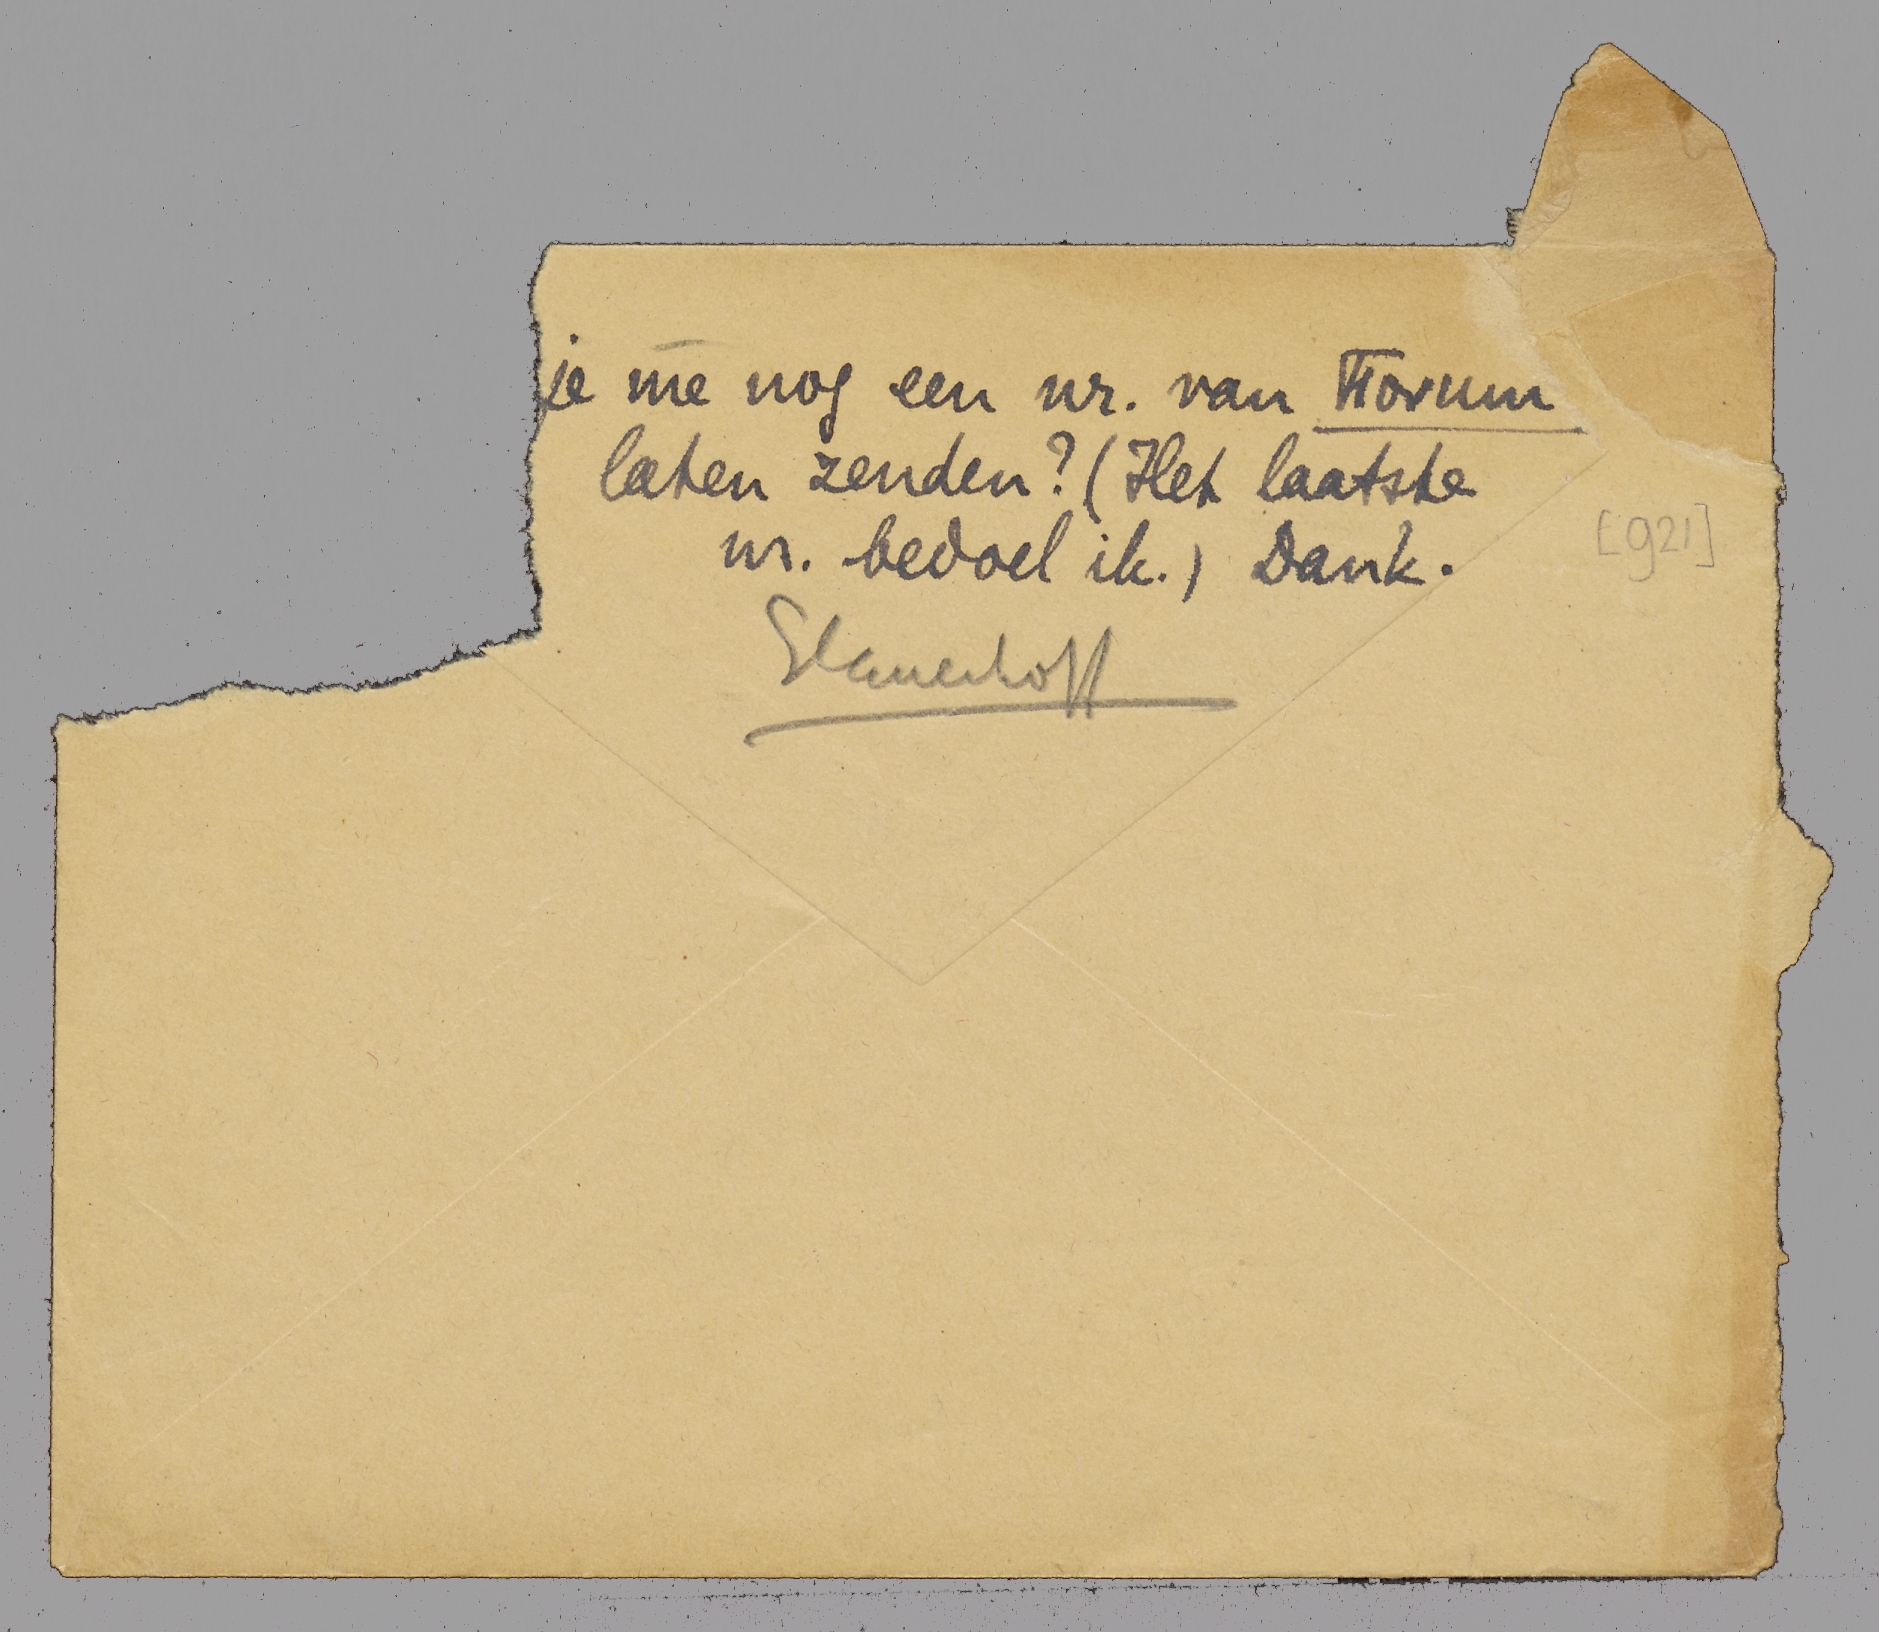 je me nog een nr. van Forum
laten zenden? (Het laatste
nr. bedoel ik.) Dank.
[921]
Slauerhoff